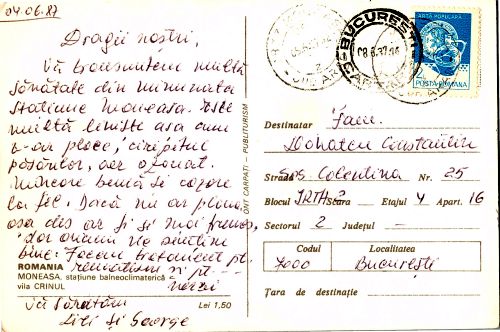 04.06.87
Dragii noștri,
Vă transmitem multă
sănătate din minunata
stațiune Moneasa. Este
multă liniște așa cum
v-ar place, ciripitul
păsărilor, aer ozonat.
Mîncare bună și cazare
la fel. Dacă nu ar ploua
așa des ar fi și mai frumos,
dar oricum ne simțim
bine. Facem tratament pt.
reumatism și pt.
nervi
Vă sărutăm
Lili și George
ROMANIA
MONEASA, stațiune balneoclimaterică
vila CRINUL
Lei 1,50
ONT CARPAȚI - PUBLITURISM
BUCUREȘTI
08.6.87
ARTA POPULARĂ
2L
POSTA ROMANA
Destinatar Fam.
Constantin
Strada Șos. Colentina Nr. 25
Blocul Scara 2 Etajul 4 Apart. 16
Sectorul 2 Județul
Codul Localitatea
7000 București
Țara de destinație